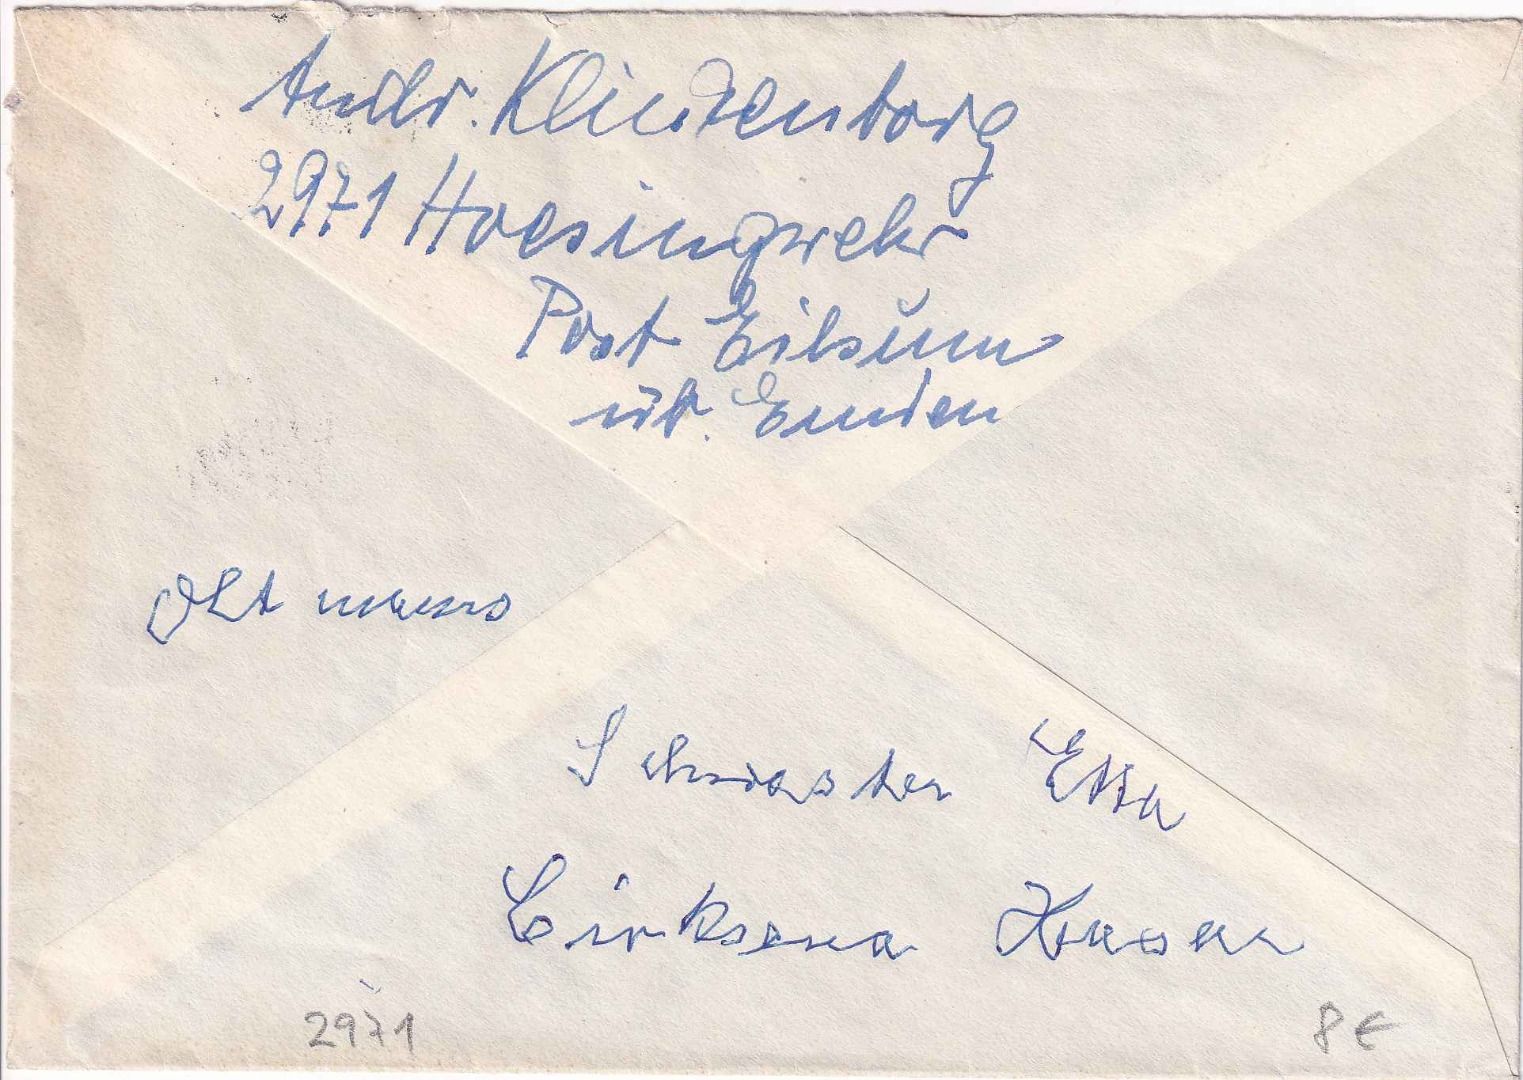 Andr. Klinkenborg
2971 Hoesingwehr
Post Eilsum
üb. Emden
Oltmanns
Schwester Etta
Cirksena
2971
8€